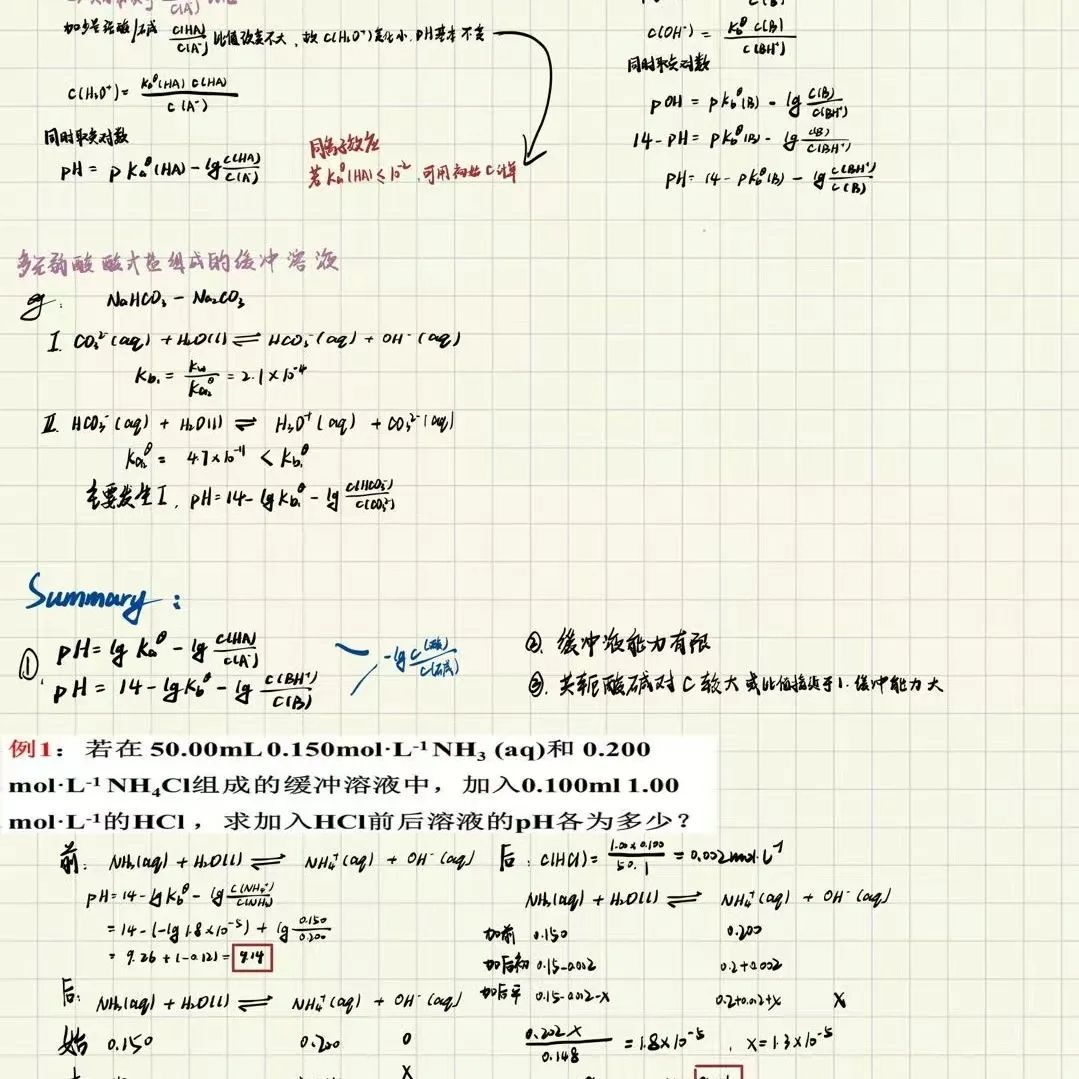 加少量强酸/碱 c(HA)/c(A⁻) 比值改变不大，故 c(H₃O⁺)变化小，pH基本不变
c(H₃O⁺) = Kₐᶿ(HA) c(HA) / c(A⁻)
同时取负对数
pH = pKₐᶿ(HA) - lg c(HA)/c(A⁻)
同离子效应
若Kₐᶿ(HA) ≤ 10⁻², 可用初始c计算
c(OH⁻) = K_bᶿ c(B) / c(BH⁺)
同时取负对数
pOH = pK_bᶿ(B) - lg c(B)/c(BH⁺)
14 - pH = pK_bᶿ(B) - lg c(B)/c(BH⁺)
pH = 14 - pK_bᶿ(B) - lg c(BH⁺)/c(B)
多元弱酸酸式盐组成的缓冲溶液
eg: NaHCO₃ - Na₂CO₃
I. CO₃²⁻(aq) + H₂O(l) ⇌ HCO₃⁻(aq) + OH⁻(aq)
K_b₁ = K_w/Kₐ₂ᶿ = 2.1×10⁻⁴
II. HCO₃⁻(aq) + H₂O(l) ⇌ H₃O⁺(aq) + CO₃²⁻(aq)
Kₐ₂ᶿ = 4.7×10⁻¹¹ < K_b₁ᶿ
主要发生I, pH = 14 - lgK_b₁ᶿ - lg c(HCO₃⁻)/c(CO₃²⁻)
Summary:
① pH = lg Kₐᶿ - lg c(HA)/c(A⁻)
pH = 14 - lgK_bᶿ - lg c(BH⁺)/c(B)
-lg c(酸)/c(碱)
②. 缓冲液能力有限
③. 共轭酸碱对c较大或比值接近于1. 缓冲能力大
例1：若在 50.00mL 0.150mol·L⁻¹ NH₃ (aq)和 0.200
mol·L⁻¹ NH₄Cl组成的缓冲溶液中，加入0.100ml 1.00
mol·L⁻¹的HCl ，求加入HCl前后溶液的pH各为多少？
前: NH₃(aq) + H₂O(l) ⇌ NH₄⁺(aq) + OH⁻(aq)
pH = 14 - lgK_bᶿ - lg c(NH₄⁺)/c(NH₃)
= 14 - (-lg 1.8×10⁻⁵) + lg 0.150/0.200
= 9.26 + (-0.12) = 9.14
后: NH₃(aq) + H₂O(l) ⇌ NH₄⁺(aq) + OH⁻(aq)
始 0.150 0.200 0
x
后: c(HCl) = 1.00×0.100/50.1 = 0.002mol·L⁻¹
NH₃(aq) + H₂O(l) ⇌ NH₄⁺(aq) + OH⁻(aq)
加前 0.150 0.200
加后初 0.15-0.002 0.2+0.002
加后平 0.15-0.002-x 0.2+0.002+x x
0.202x/0.148 = 1.8×10⁻⁵, x = 1.3×10⁻⁵